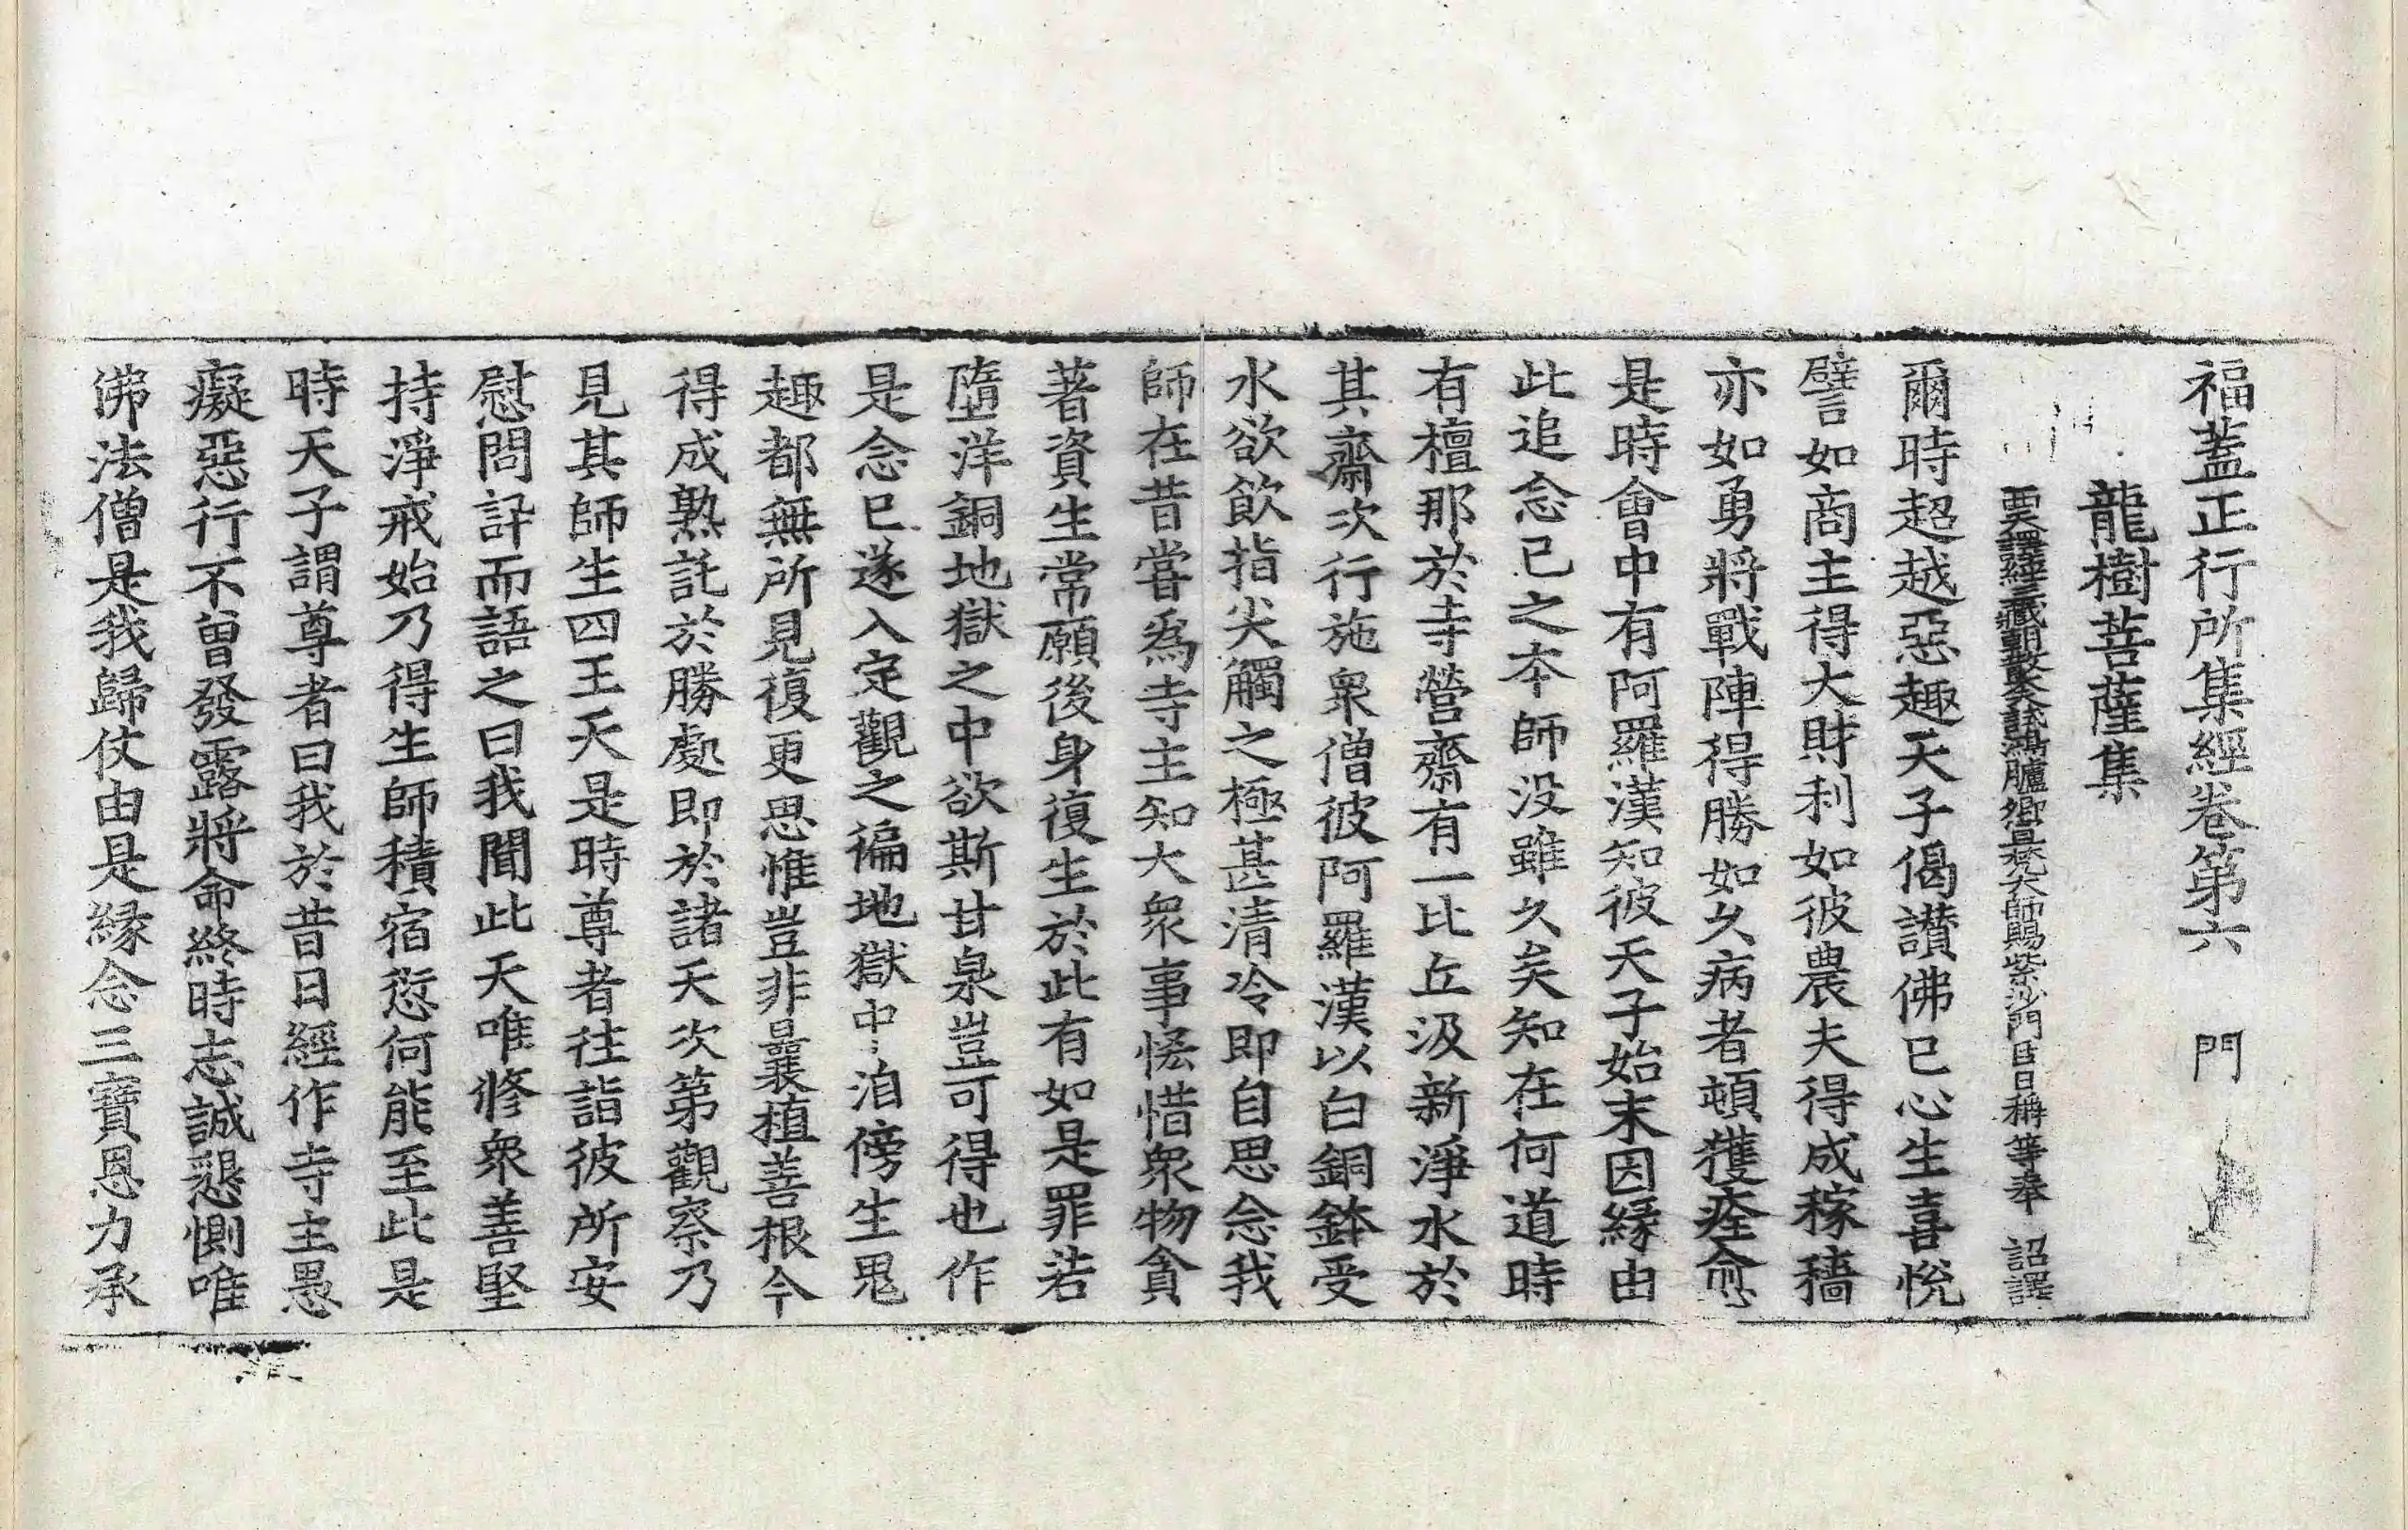 福蓋正行所集經卷第六　門
龍樹菩薩集
西天譯經三藏朝散大夫試鴻臚卿宣梵大師賜紫沙門臣日稱等奉　詔譯
爾時超越惡趣天子偈讃佛已心生喜悅
譬如商主得大財利如彼農夫得成稼穡
亦如勇將戰陣得勝如久病者頓獲痊愈
是時會中有阿羅漢知彼天子始末因緣由
此追念已之本師没雖久矣知在何道時
有檀那於寺營齋有一比丘汲新淨水於
其齋次行施衆僧彼阿羅漢以白銅鉢受
水欲飲指尖觸之極甚清冷即自思念我
師在昔甞爲寺主知大衆事悋惜衆物貪
著資生常願後身復生於此有如是罪若
墮洋銅地獄之中欲斯甘泉豈可得也作
是念已遂入定觀之徧地獄中洎傍生鬼
趣都無所見復更思惟豈非曩植善根今
得成熟託於勝處即於諸天次第觀察乃
見其師生四王天是時尊者往詣彼所安
慰問訊而語之曰我聞此天唯修衆善堅
持淨戒始乃得生師積宿愆何能至此是
時天子謂尊者曰我於昔日經作寺主愚
癡惡行不曾發露將命終時志誠懇惻唯
佛法僧是我歸仗由是緣念三寶恩力承